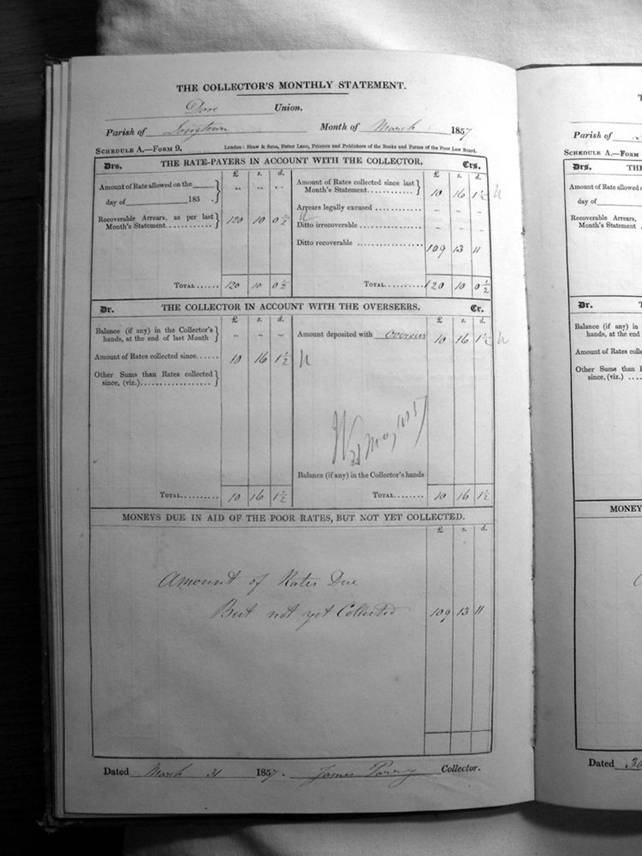 THE COLLECTOR'S MONTHLY STATEMENT.
Dore Union.
Parish of Longtown Month of March 1857
SCHEDULE A.—FORM 9. London: Shaw & Sons, Fetter Lane, Printers and Publishers of the Books and Forms of the Poor Law Board.
Drs. THE RATE-PAYERS IN ACCOUNT WITH THE COLLECTOR. Crs.
£ s. d. £ s. d.
Amount of Rate allowed on the
day of 185 . } " - -
Recoverable Arrears, as per last
Month's Statement } 120 10 0½
TOTAL 120 10 0½
Amount of Rates collected since last
Month's Statement } 10 16 1½
Arrears legally excused - - -
Ditto irrecoverable - - -
Ditto recoverable 109 13 11
TOTAL 120 10 0½
Dr. THE COLLECTOR IN ACCOUNT WITH THE OVERSEERS. Cr.
£ s. d. £ s. d.
Balance (if any) in the Collector's
hands, at the end of last Month } - - -
Amount of Rates collected since 10 16 1½
Other Sums than Rates collected
since, (viz.) }
TOTAL 10 16 1½
Amount deposited with Overseers 10 16 1½
May 1857
Balance (if any) in the Collector's hands
TOTAL 10 16 1½
MONEYS DUE IN AID OF THE POOR RATES, BUT NOT YET COLLECTED.
£ s. d.
Amount of Rates Due
But not yet Collected 109 13 11
Dated March 31 1857. James Parry Collector.
Parish of
SCHEDULE A.—FORM
Drs.
Amount of Rate allowed
day of
Recoverable Arrears,
Month's Statement
Dr.
Balance (if any) in
hands, at the end
Amount of Rates
Other Sums than
since, (viz.)
MONEY
Dated